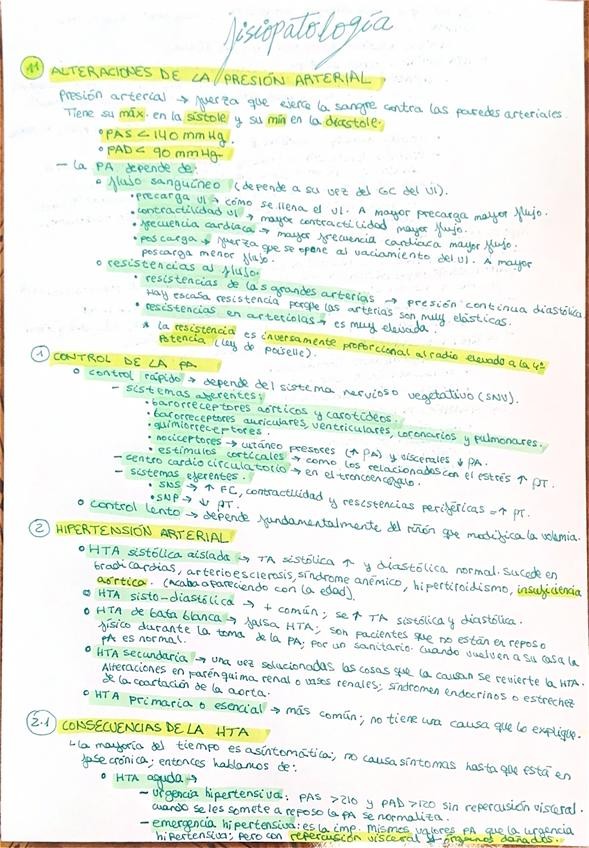 fisiopatología
11 ALTERACIONES DE LA PRESIÓN ARTERIAL
Presión arterial → fuerza que ejerce la sangre contra las paredes arteriales.
Tiene su máx. en la sístole y su mín en la diástole.
• PAS < 140 mmHg.
• PAD < 90 mmHg.
- La PA depende de:
o flujo sanguíneo (depende a su vez del GC del VI).
• precarga VI → cómo se llena el VI. A mayor precarga mayor flujo.
• contractilidad VI → mayor contractilidad mayor flujo.
• frecuencia cardíaca → mayor frecuencia cardíaca mayor flujo.
• poscarga → fuerza que se opone al vaciamiento del VI. A mayor
poscarga menor flujo.
o resistencias al flujo.
• resistencias de las grandes arterias → presión continua diastólica.
Hay escasa resistencia porque las arterias son muy elásticas.
• resistencias en arteriolas → es muy elevada.
* la resistencia es inversamente proporcional al radio elevado a la 4ª
potencia (ley de Poiselle).
1 CONTROL DE LA PA
o control rápido → depende del sistema nervioso vegetativo (SNV).
- sistemas aferentes:
• barorreceptores aórticos y carotídeos.
• barorreceptores auriculares, ventriculares, coronarios y pulmonares.
• quimiorreceptores.
• nociceptores → cutáneo presores (↑ PA) y viscerales ↓ PA.
• estímulos corticales → como los relacionados con el estrés ↑ PT.
- centro cardio circulatorio → en el troncoencéfalo.
- sistemas eferentes.
• SNS → ↑ FC, contractilidad y resistencias periféricas = ↑ PT.
• SNP → ↓ PT.
o control lento → depende fundamentalmente del riñón que modifica la volemia.
2 HIPERTENSIÓN ARTERIAL
o HTA sistólica aislada → TA sistólica ↑ y diastólica normal. Sucede en
bradicardias, arterioesclerosis, síndrome anémico, hipertiroidismo, insuficiencia
aórtica. (Acaba apareciendo con la edad).
o HTA sisto-diastólica → + común; se ↑ TA sistólica y diastólica.
o HTA de bata blanca → falsa HTA; son pacientes que no están en reposo
físico durante la toma de la PA; por un sanitario. cuando vuelven a su casa la
PA es normal.
o HTA secundaria → una vez solucionadas las cosas que la causan se revierte la HTA.
Alteraciones en parénquima renal o vasos renales; síndromen endocrinos o estrechez
de la coartación de la aorta.
o HTA primaria o esencial → más común; no tiene una causa que lo explique.
2.1 CONSECUENCIAS DE LA HTA
↳ la mayoría del tiempo es asintomática; no causa síntomas hasta que está en
fase crónica; entonces hablamos de:
o HTA aguda →
- urgencia hipertensiva: PAS >210 y PAD >120 sin repercusión visceral.
cuando se les somete a reposo la PA se normaliza.
- emergencia hipertensiva: es la imp. Mismos valores PA que la urgencia
hipertensiva; pero con repercusión visceral y órganos dañados.